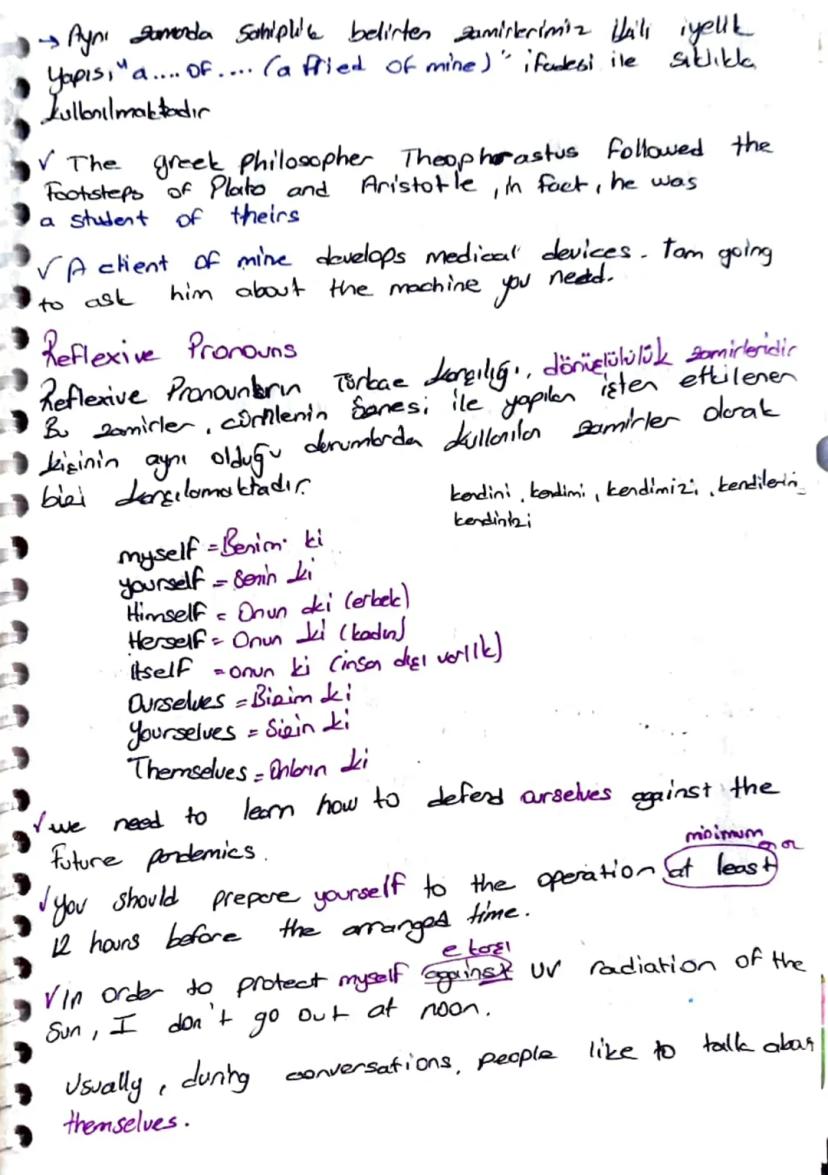 → Aynı zamanda sahiplik belirten zamirlerimiz ikili iyelik
yapısı "a.... of .... (a fried of mine)" ifadesi ile sıklıkla
kullanılmaktadır
✓ The greek philosopher Theophrastus followed the
footsteps of Plato and Aristotle, in fact, he was
a student of theirs
✓ A client of mine develops medical devices. Iam going
to ask him about the machine you need.
Reflexive Pronouns
Reflexive Pronounların Türkçe karşılığı, dönüşlülülük zamirleridir
Bu zamirler, cümlenin öznesi ile yapılan işten etkilenen
kişinin aynı olduğu durumlarda kullanılan zamirler olarak
bizi karşılamaktadır.
kendini, kendimi, kendimizi, kendilerin
myself = Benim ki
yourself = Senin ki
Himself = Onun ki (erkek)
Herself = Onun ki (kadın)
itself = onun ki (insan dışı varlık)
Ourselves = Bizim ki
Yourselves = Sizin ki
Themselves = Onların ki
✓ we need to learn how to defend ourselves against the
future pandemics.
minimum
✓ you should prepare yourself to the operation at least
12 hours before the arranged time.
e karşı
✓ in order to protect myself against UV radiation of the
Sun, I don't go out at noon.
Usually, during conversations, people like to talk about
themselves.